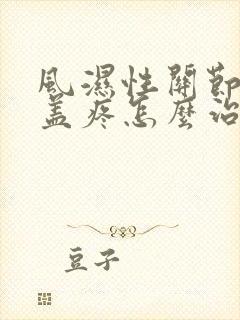 風濕性關節
蓋疼怎麼治
豆子